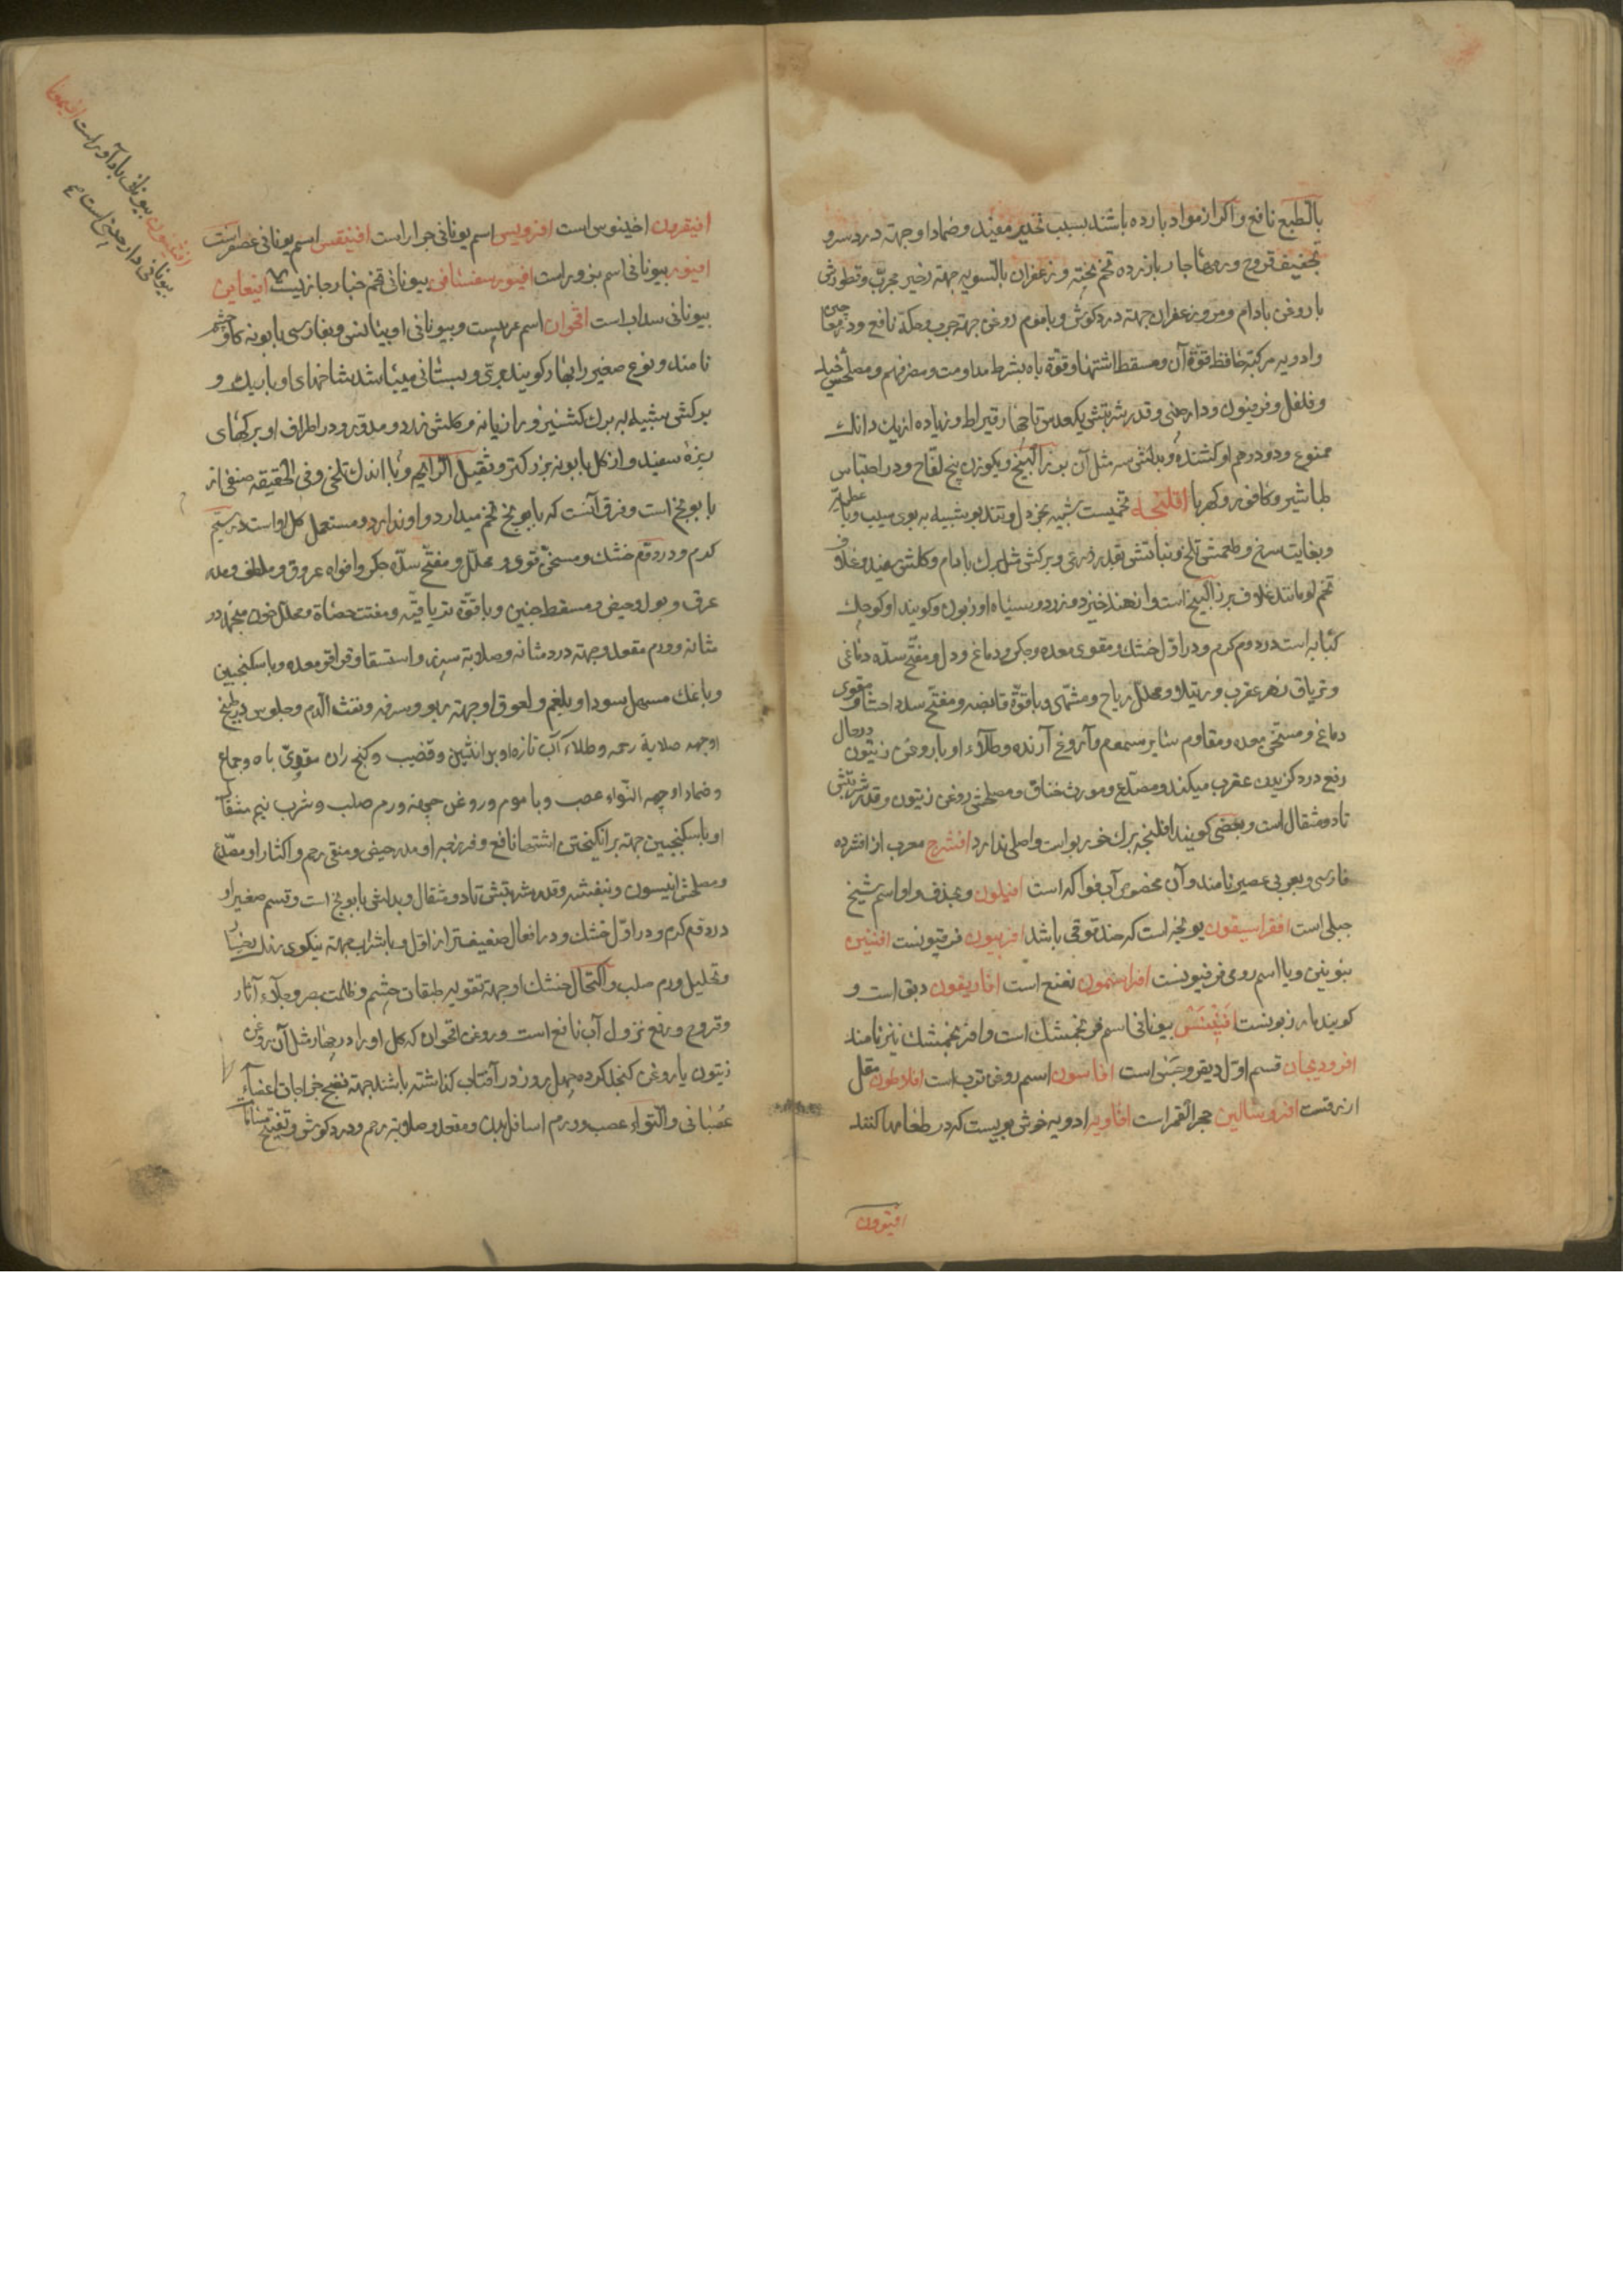 بالطبع نافع و اکر از مواد بارده باشند بسبب تخدیر مفید و ضماد او جهته درد سر و
تجفیف قروح و رمهاء حار با زرده تخم پخته و زعفران بالسویه جهته زخیر مجرب و قطورش
با روغن بادام و مر و زعفران جهته درد کوش و با موم روغن جهته جرب و حکه نافع و در معاجین
و ادویه مرکبه حافظ قوة آن و مسقط اشتها و قوة باه بشرط مداومت و مضر فهم و مصلحش
و فلفل و فرفیون و دارچینی و قدر شربتش یکعدس تا چهار قیراط و زیاده از یک دانک
ممنوع و دو درهم او کشنده و بدلش سه مثل آن بزر البنج و یکوزن بیخ لفاح و در احتباس
طباشیر و کافور و کهربا افلنجه تخمیست شبیه بخردل و تندبو شبیه به بوی سیب و با عطریة
و بغایت سرخ و طعمش تلخ و نباتش بقدر ذرعی و برکش مثل برک بادام و کلش سفید و غلاف
تخم او مانند غلاف بزر البنج است و از هند خیزد و زرد و سیاه او زبون و کویند او کوچک
کبابه است در دوم کرم و در اول خشک و مقوی معده و جکر و دماغ و دل و مفتح سده دماغی
و تریاق زهر عقرب و رتیلا و محلل ریاح و مشهی و با قوة قابضه و مفتح سدد احشا و مقوی
دماغ و مسخن معده و مقاوم سایر سموم و آروغ آرنده و طلاء او با روغن زیتون در حال
رفع درد کزیدن عقرب میکند و مصدع و مورث خناق و مصلحش روغن زیتون و قدر شربتش
تا دو مثقال است و بعضی کویند افلنجه برک خربو است و اصلی ندارد افشرج معرب از افشرده
فارسی و بعربی عصیر نامند و آن مخصوص آب فواکه است افیلون و بحذف واو اسم شیخ
جبلی است افقراسیقون یونجه است که حندقوقی باشد افربیون فرفیونست افنین
بنونین و یا اسم رومی فرفیونست نعنع است افاریقون دبق است و
کویند بارزبونست بیونانی اسم فرنجمشک است و افرنجمشک نیز نامند
افرودیجان قسم اول دیفروجس است افاسون اسم روغن ترب است افلاطون مقل
ازرقست افروسالین حجر القمر است افاویه ادویه خوش بویست که در طعامها کنند
افیقرون اخینوس است اسم یونانی جرار است افینقس اسم یونانی عصفر است
افیور بیونانی اسم بزور است بیونانی تخم خبار جاز است
بیونانی سداب است اقحوان اسم عربیست و بیونانی و بفارسی بابونه کاو چشم
نامند و نوع صغیر را بهار کویند بری و بستانی میباشد شاخهای او باریک و
برکش شبیه به برک کشنیز و رازیانه و کلش زرد و مدور و در اطراف او برکهای
ریزه سفید و از کل بابونه بزرکتر و ثقیل الرائحه و با اندک تلخی و فی الحقیقه صنفی از
بابونج است و فرق آنست که بابونج تخم میدارد و او ندارد و مستعمل کل او است در سیم
کرم و در دویم خشک و مسخن قوی و محلل و مفتح سده جکر و افواه عروق و ملطف و مدر
عرق و بول و حیض و مسقط جنین و با قوة تریاقیه و مفتت حصاة و محلل خون منجمد در
مثانه و ورم مقعد و جهته درد مثانه و صلابة سپرز و استسقا و قراقر معده و با سکنجبین
و با نمک مسهل سودا و بلغم و لعوق او جهته ربو و سرفه و نفث الدم و جلوس در طبیخ
او جهته صلابة رحم و طلاء آب تازه او بر انثیین و قضیب و کنج ران مقوی باه و جماع
و ضماد او جهته التواء عصب و با موم و روغن جهته ورم صلب و شرب نیم مثقال
او با سکنجبین جهته برانکیختن اشتها نافع و فرزجه او مدر حیض و منقی رحم و اکثار او مصدع
و مصلحش انیسون و بنفشه و قدر شربتش تا دو مثقال و بدلش بابونج است و قسم صغیر او
در دویم کرم و در اول خشک و در افعال ضعیفتر از اول و با شراب جهته نیکوی رنک رخسار
و تحلیل ورم صلب و اکتحال خشک او جهته تقویه طبقات چشم و ظلمت بصر و جلاء آثار
و قروح و رفع نزول آب نافع است و روغن اقحوان که کل او را در چهار مثل آن روغن
زیتون یا روغن کنجد کرده چهل روز در آفتاب کذاشته باشند جهته نضج خراجات اعضاء
عصبانی و التواء عصب و ورم اسافل بدن و مقعد و صلابة رحم و درد کوش و تفتیح مسامات
افیوون
بیونانی بادآورد است
بیونانی دارچینی است